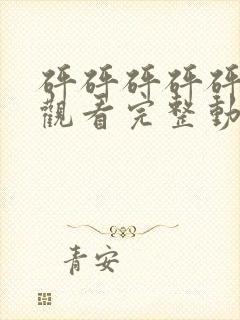 砰砰砰砰砰
觀看完整動
青安